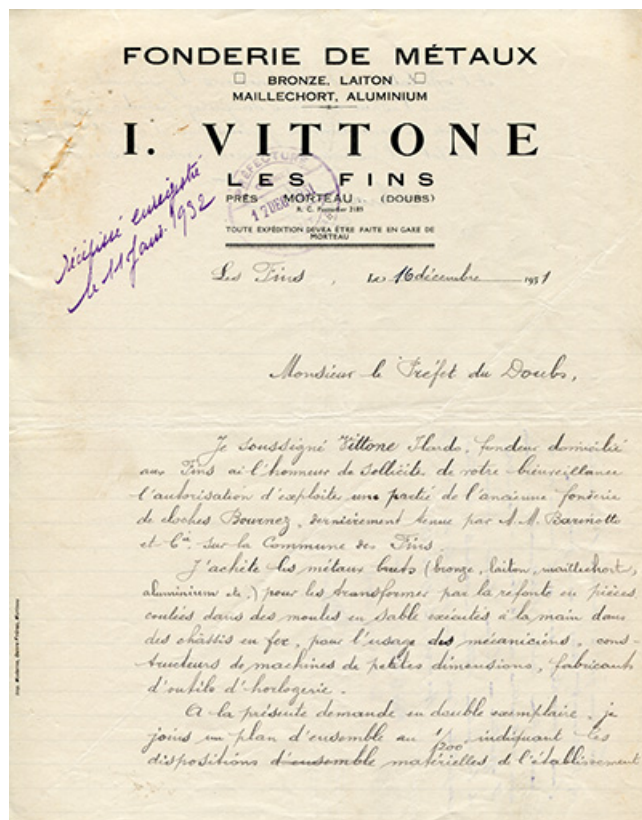 FONDERIE DE MÉTAUX
BRONZE, LAITON
MAILLECHORT, ALUMINIUM
I. VITTONE
LES FINS
PRÈS MORTEAU (DOUBS)
R. C. Pontarlier 2185
TOUTE EXPÉDITION DEVRA ÊTRE FAITE EN GARE DE
MORTEAU
PRÉFECTURE
17 DEC
Récépissé enregistré
le 11 Janv. 1932
Les Fins, Le 16 décembre 1931
Monsieur le Préfet du Doubs,
Je soussigné Vittone Ilardo, fondeur domicilié
aux Fins ai l'honneur de sollicite de votre bienveillance
l'autorisation d'exploite une partie de l'ancienne fonderie
de cloches Bournez, dernièrement tenue par M.M. Barinotto
et Cie sur la Commune des Fins.
J'achète les métaux bruts (bronze, laiton, maillechort,
aluminium etc.) pour les transformer par la refonte en pièces
coulées dans des moules en sable exécutés à la main dans
des châssis en fer, pour l'usage des mécaniciens, cons-
tructeurs de machines de petites dimensions, fabricants
d'outils d'horlogerie.
A la présente demande en double exemplaire, je
joins un plan d'ensemble au 1/200 indiquant les
dispositions d'ensemble matérielles de l'établissement